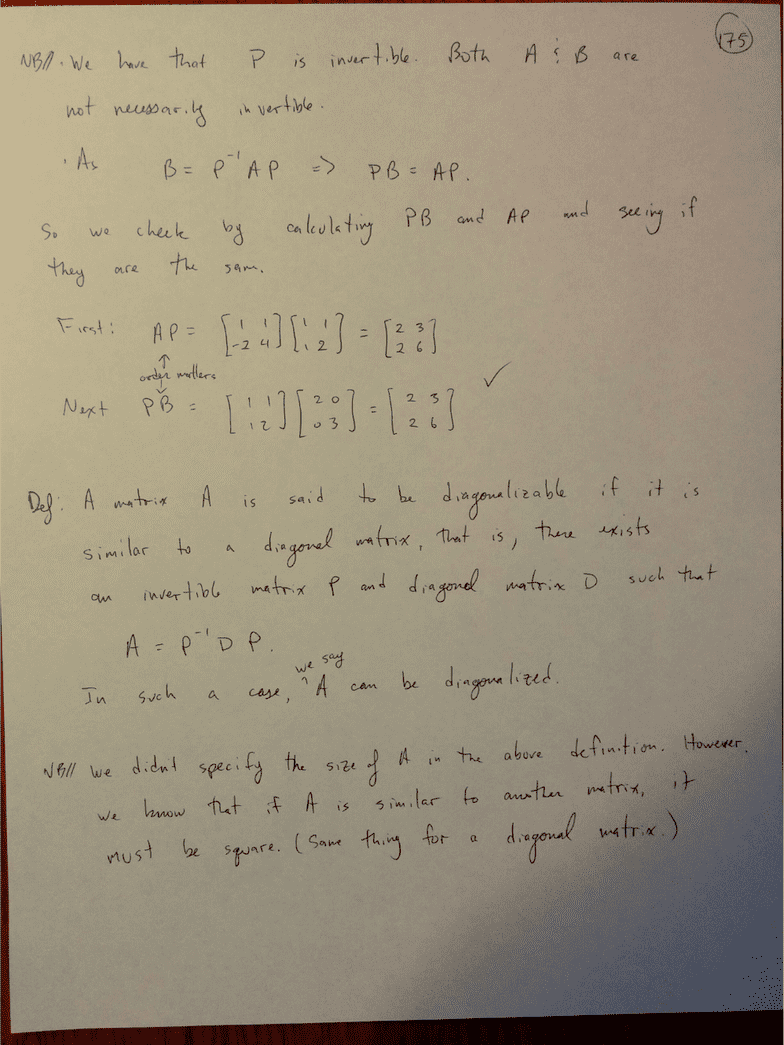 175
NB// · We have that P is invertible. Both A & B are
not necessarily invertible.
· As B = P⁻¹AP => PB = AP.
So we check by calculating PB and AP and seeing if
they are the sam.
First: AP = [1 1; -2 4] [1 1; 1 2] = [2 3; 2 6]
↑
order matters
↓
Next PB = [1 1; 1 2] [2 0; 0 3] = [2 3; 2 6] ✓
Def: A matrix A is said to be diagonalizable if it is
similar to a diagonal matrix, that is, there exists
an invertible matrix P and diagonal matrix D such that
A = P⁻¹ D P.
we say
In such a case, ^ A can be diagonalized.
NB// We didnt specify the size of A in the above definition. However,
we know that if A is similar to another matrix, it
must be square. (Same thing for a diagonal matrix.)